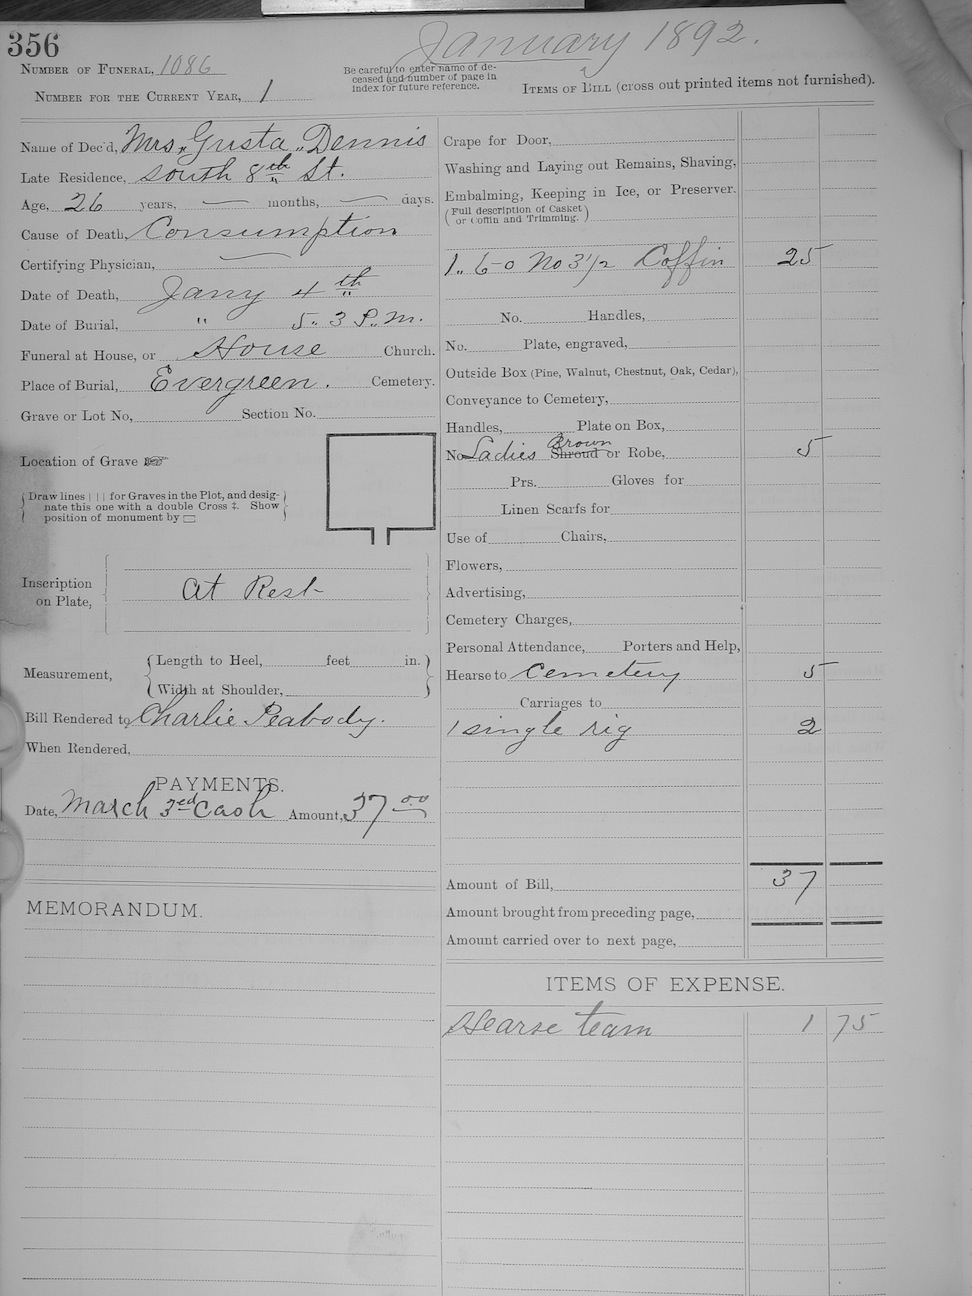 356
January 1892.
Number of Funeral, 1086
Be careful to enter name of de-
ceased and number of page in
index for future reference.
Number for the Current Year, 1
Items of Bill (cross out printed items not furnished).
Name of Dec'd, Mrs. Gusta Dennis
Late Residence, South 8th St.
Age, 26 years, — months, — days.
Cause of Death, Consumption
Certifying Physician, —
Date of Death, Jany 4th
Date of Burial, " 5. 3 P.M.
Funeral at House, or House Church.
Place of Burial, Evergreen. Cemetery.
Grave or Lot No, Section No.
Location of Grave ☞
Draw lines | | | for Graves in the Plot, and desig-
nate this one with a double Cross ‡. Show
position of monument by ▭
Inscription
on Plate,
At Rest
Measurement,
Length to Heel, feet in.
Width at Shoulder,
Bill Rendered to Charlie Peabody.
When Rendered,
PAYMENTS.
Date, March 3ed Cash Amount, 37 00
MEMORANDUM.
Crape for Door,
Washing and Laying out Remains, Shaving,
Embalming, Keeping in Ice, or Preserver.
(Full description of Casket
or Coffin and Trimming.)
1.. 6-0 No 3 1/2 Coffin 25
No. Handles,
No. Plate, engraved,
Outside Box (Pine, Walnut, Chestnut, Oak, Cedar),
Conveyance to Cemetery,
Handles, Plate on Box,
Brown
No Ladies Shroud or Robe, 5
Prs. Gloves for
Linen Scarfs for
Use of Chairs,
Flowers,
Advertising,
Cemetery Charges,
Personal Attendance, Porters and Help,
Hearse to Cemetery 5
Carriages to
1 single rig 2
Amount of Bill, 37
Amount brought from preceding page,
Amount carried over to next page,
ITEMS OF EXPENSE.
Hearse team 1 75